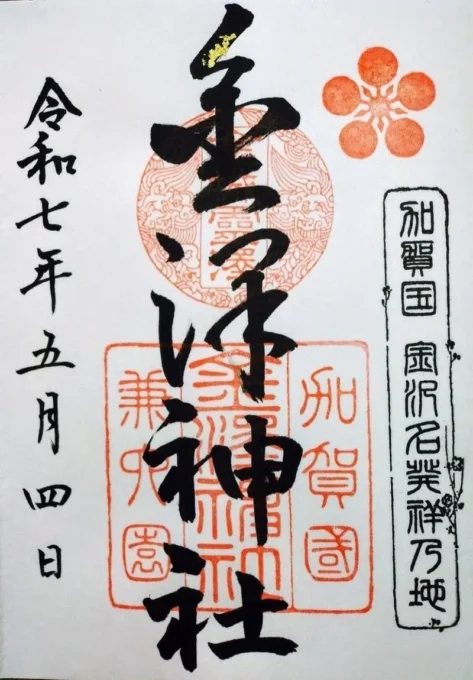 加賀国 金沢名発祥乃地
金澤神社
加賀國
金澤神社
兼六園
令和七年五月四日